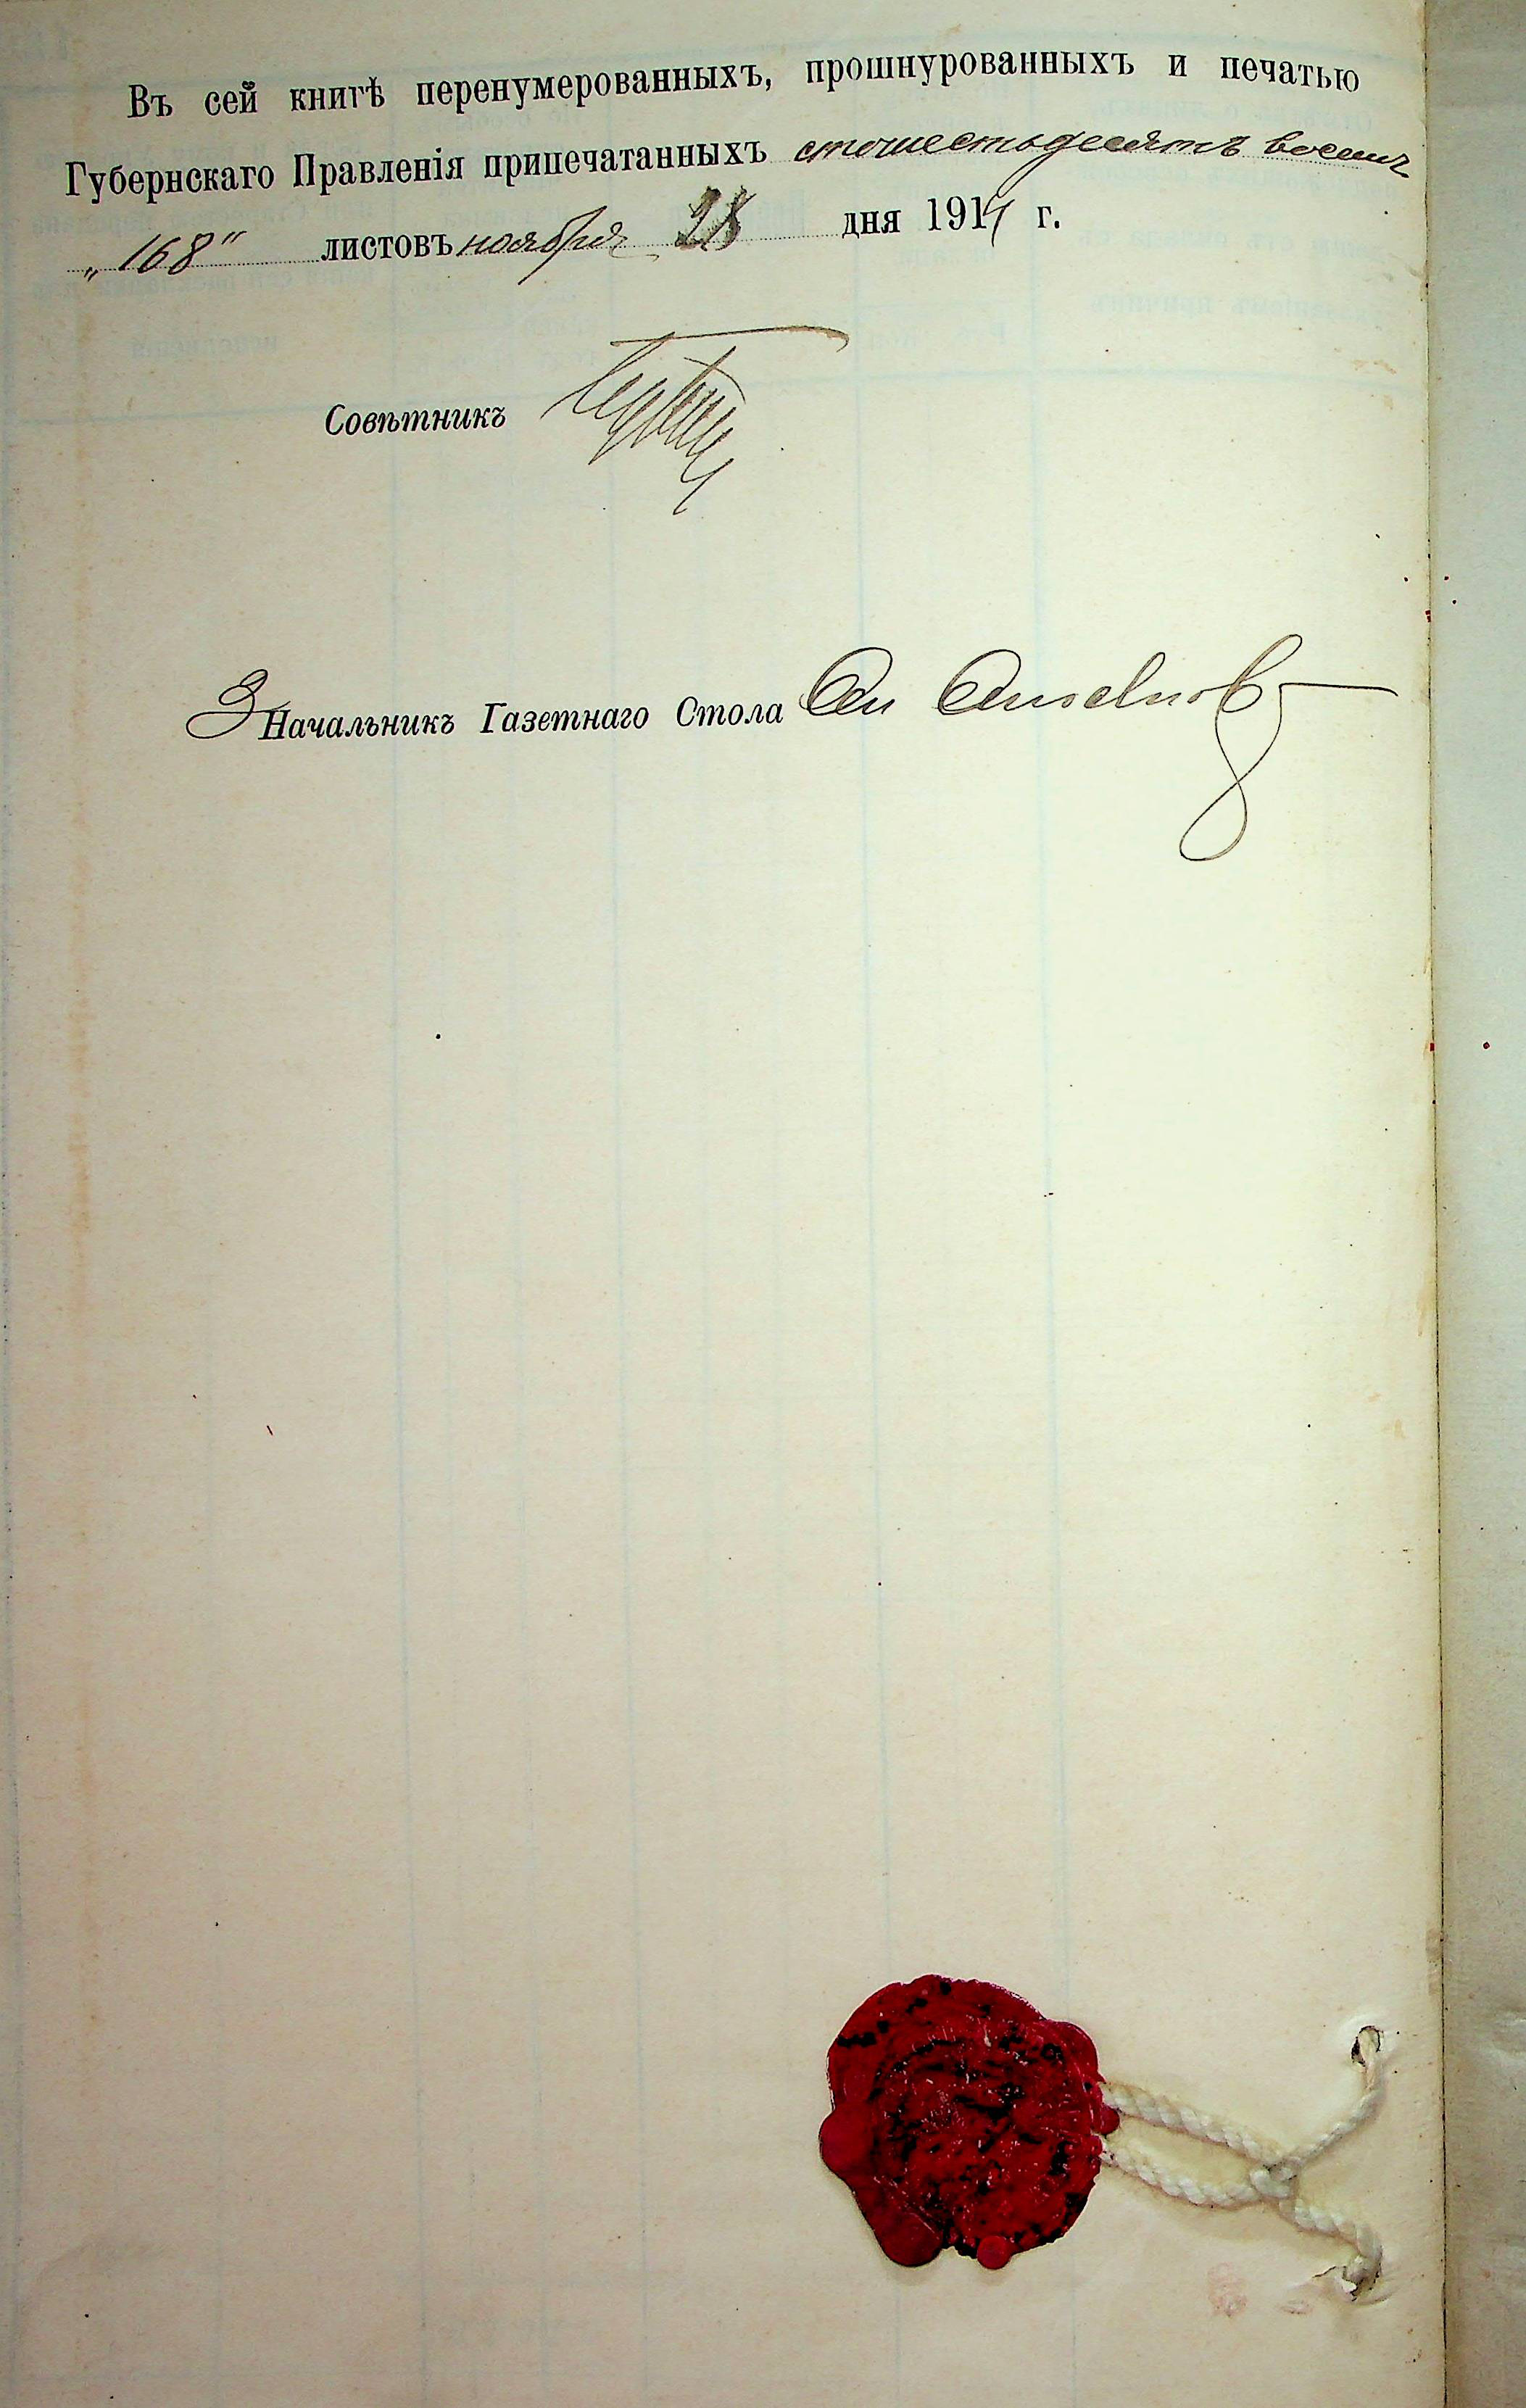 Въ сей книгѣ перенумерованныхъ, прошнурованныхъ и печатью
Губернскаго Правленія припечатанныхъ стошестьдесятъ восемь
„168“ листовъ ноября 28 дня 1914 г.
Совѣтникъ
З Начальникъ Газетнаго Стола Ан